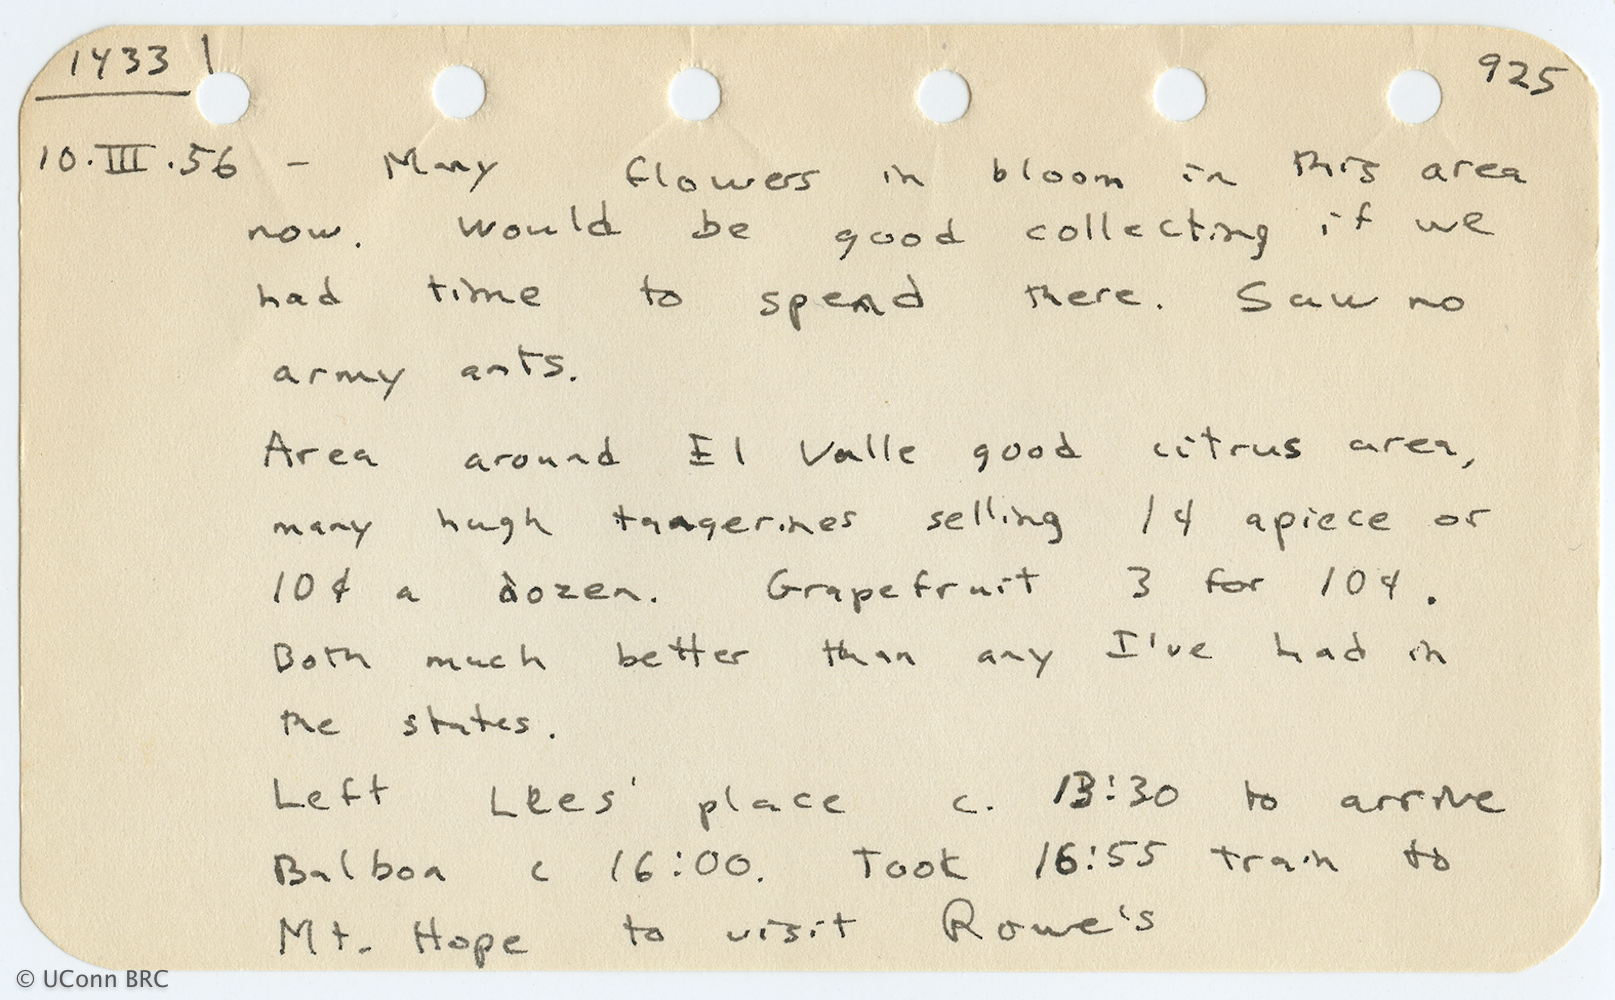 1433 925
10.III.56 - Many flowers in bloom in this area
now. Would be good collecting if we
had time to spend there. Saw no
army ants.
Area around El Valle good citrus area,
many hugh tangerines selling 1¢ apiece or
10¢ a dozen. Grapefruit 3 for 10¢.
Both much better than any I've had in
the states.
Left Lees' place c. 13:30 to arrive
Balboa c 16:00. Took 16:55 train to
Mt. Hope to visit Rowe's
© UConn BRC